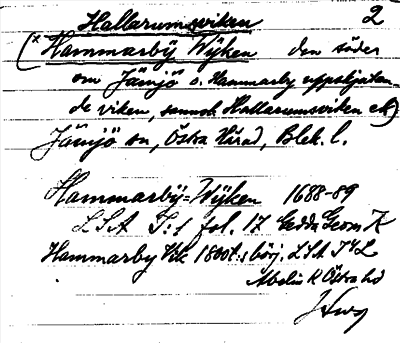 Hallarumsviken 2
(* Hammarby Wijken den söder
om Jämjö o. Hammarby uppskjutan
de viken, sannol. Hallarumsviken el.)
Jämjö sn, Östra Härad, Blek. l.
Hammarby=Wijken 1688-89
LSA I:1 fol. 17 Gedda Geom K
Hammarby Vik 1800t:s börj. LSA
Abelin K Östra hd